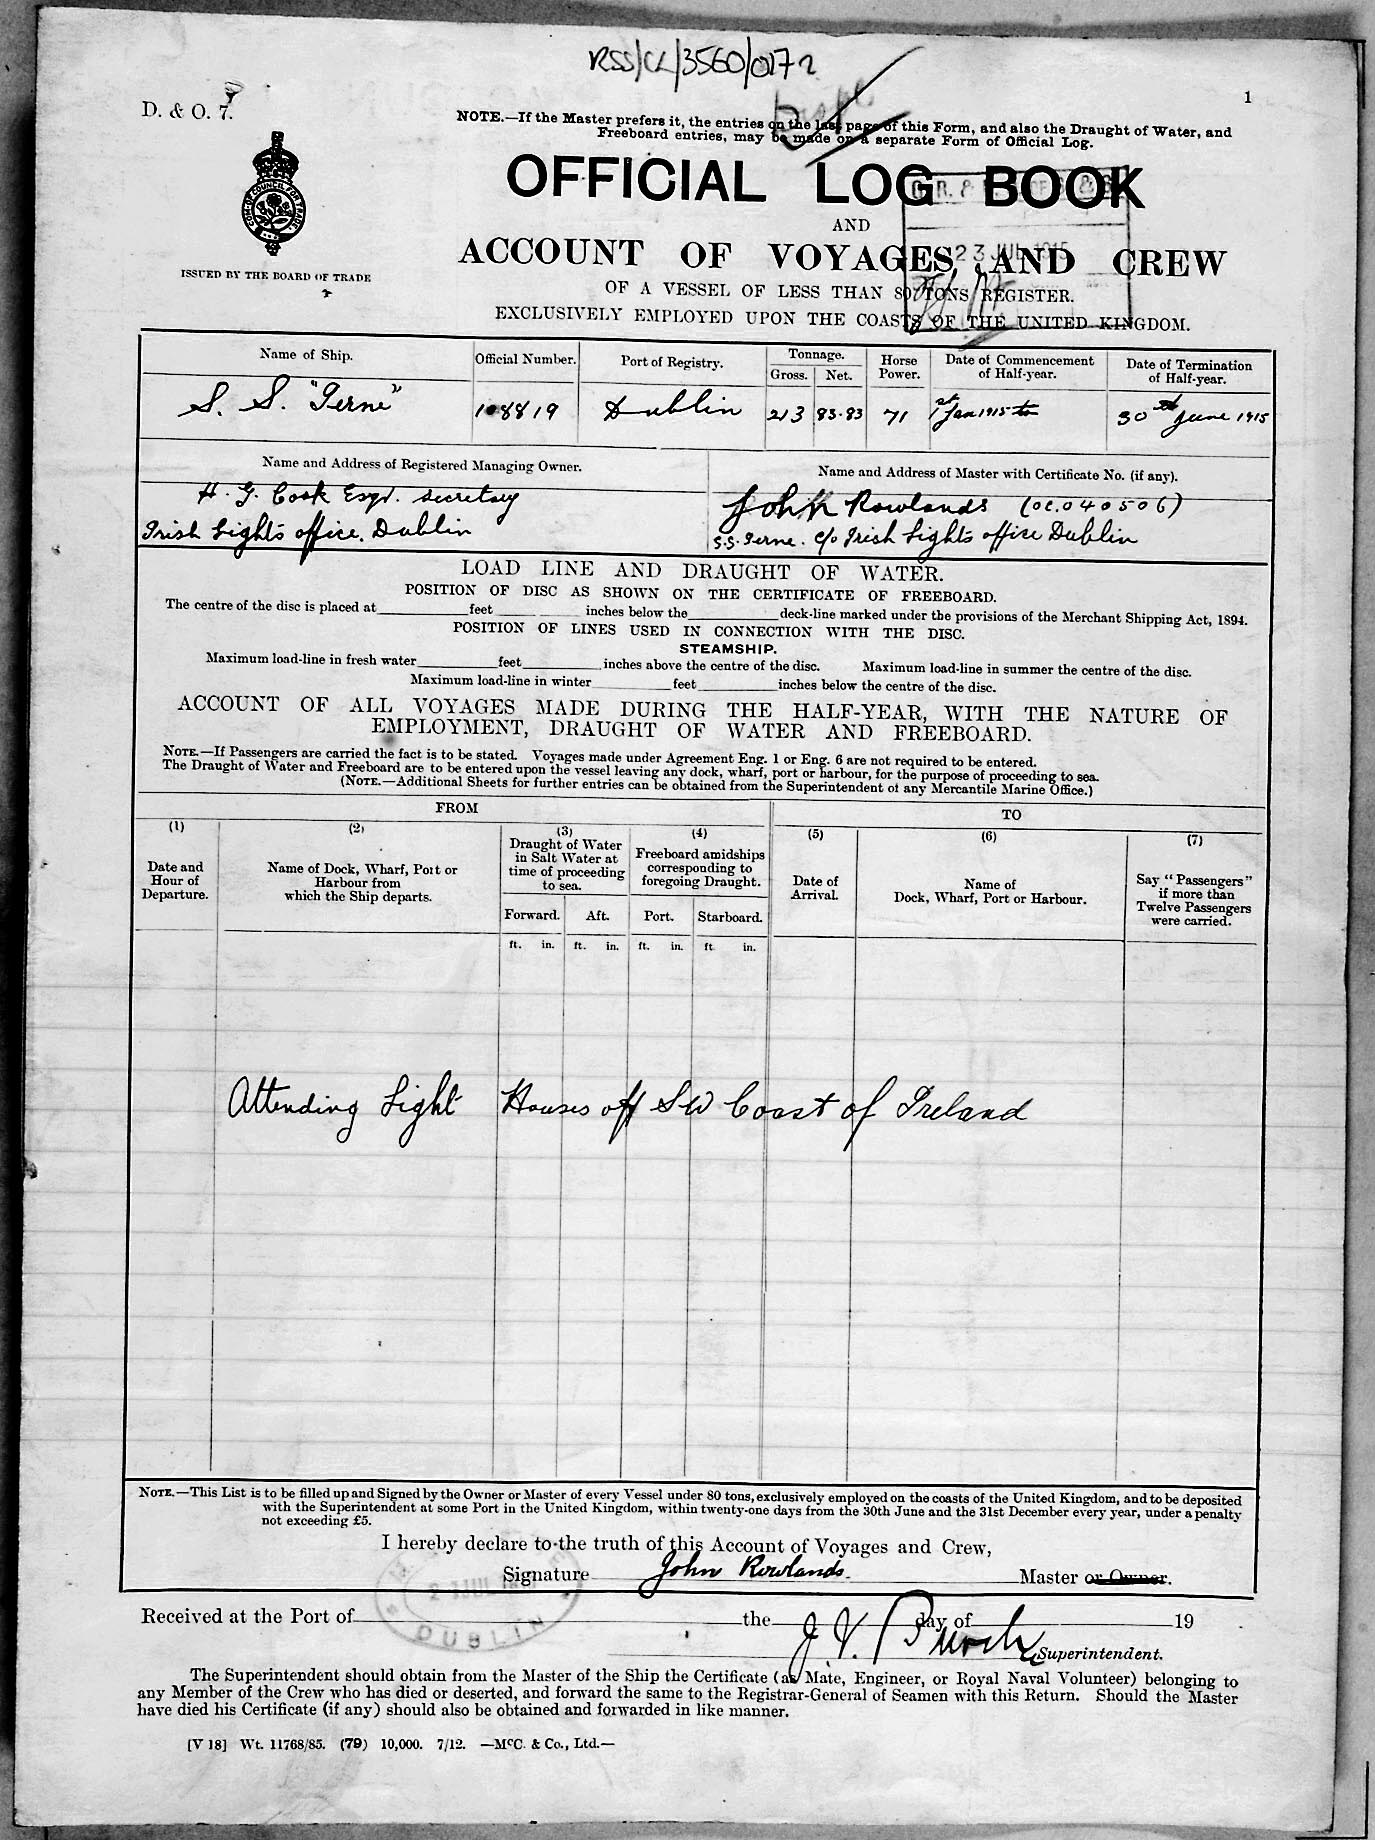 RSS/CL/3560/0172
1
D. & O. 7.
NOTE.—If the Master prefers it, the entries on the last page of this Form, and also the Draught of Water, and
Freeboard entries, may be made on a separate Form of Official Log.
OFFICIAL LOG BOOK
AND
ACCOUNT OF VOYAGES AND CREW
23 JUL 1915
ISSUED BY THE BOARD OF TRADE
OF A VESSEL OF LESS THAN 80 TONS REGISTER.
EXCLUSIVELY EMPLOYED UPON THE COASTS OF THE UNITED KINGDOM.
Name of Ship. Official Number. Port of Registry. Tonnage. Gross. Net. Horse Power. Date of Commencement of Half-year. Date of Termination of Half-year.
S. S. "Ierne" 108819 Dublin 213 83.83 71 1st Jan 1915 to 30th June 1915
Name and Address of Registered Managing Owner. Name and Address of Master with Certificate No. (if any).
H. G. Cook Esqr. secretary John Rowlands (oc.040506)
Irish Lights office, Dublin S.S. Ierne. c/o Irish Lights office Dublin
LOAD LINE AND DRAUGHT OF WATER.
POSITION OF DISC AS SHOWN ON THE CERTIFICATE OF FREEBOARD.
The centre of the disc is placed at feet inches below the deck-line marked under the provisions of the Merchant Shipping Act, 1894.
POSITION OF LINES USED IN CONNECTION WITH THE DISC.
STEAMSHIP.
Maximum load-line in fresh water feet inches above the centre of the disc. Maximum load-line in summer the centre of the disc.
Maximum load-line in winter feet inches below the centre of the disc.
ACCOUNT OF ALL VOYAGES MADE DURING THE HALF-YEAR, WITH THE NATURE OF
EMPLOYMENT, DRAUGHT OF WATER AND FREEBOARD.
NOTE.—If Passengers are carried the fact is to be stated. Voyages made under Agreement Eng. 1 or Eng. 6 are not required to be entered.
The Draught of Water and Freeboard are to be entered upon the vessel leaving any dock, wharf, port or harbour, for the purpose of proceeding to sea.
(NOTE.—Additional Sheets for further entries can be obtained from the Superintendent of any Mercantile Marine Office.)
FROM TO
(1) (2) (3) (4) (5) (6) (7)
Date and Hour of Departure.
Name of Dock, Wharf, Port or Harbour from which the Ship departs.
Draught of Water in Salt Water at time of proceeding to sea.
Freeboard amidships corresponding to foregoing Draught.
Date of Arrival.
Name of Dock, Wharf, Port or Harbour.
Say "Passengers" if more than Twelve Passengers were carried.
Forward. Aft. Port. Starboard.
ft. in. ft. in. ft. in. ft. in.
Attending Light Houses off SW Coast of Ireland
NOTE.—This List is to be filled up and Signed by the Owner or Master of every Vessel under 80 tons, exclusively employed on the coasts of the United Kingdom, and to be deposited
with the Superintendent at some Port in the United Kingdom, within twenty-one days from the 30th June and the 31st December every year, under a penalty
not exceeding £5.
I hereby declare to the truth of this Account of Voyages and Crew,
Signature John Rowlands. Master or Owner.
DUBLIN
Received at the Port of the day of 19
J. V. Superintendent.
The Superintendent should obtain from the Master of the Ship the Certificate (as Mate, Engineer, or Royal Naval Volunteer) belonging to
any Member of the Crew who has died or deserted, and forward the same to the Registrar-General of Seamen with this Return. Should the Master
have died his Certificate (if any) should also be obtained and forwarded in like manner.
[V 18] Wt. 11768/85. (79) 10,000. 7/12. —McC. & Co., Ltd.—